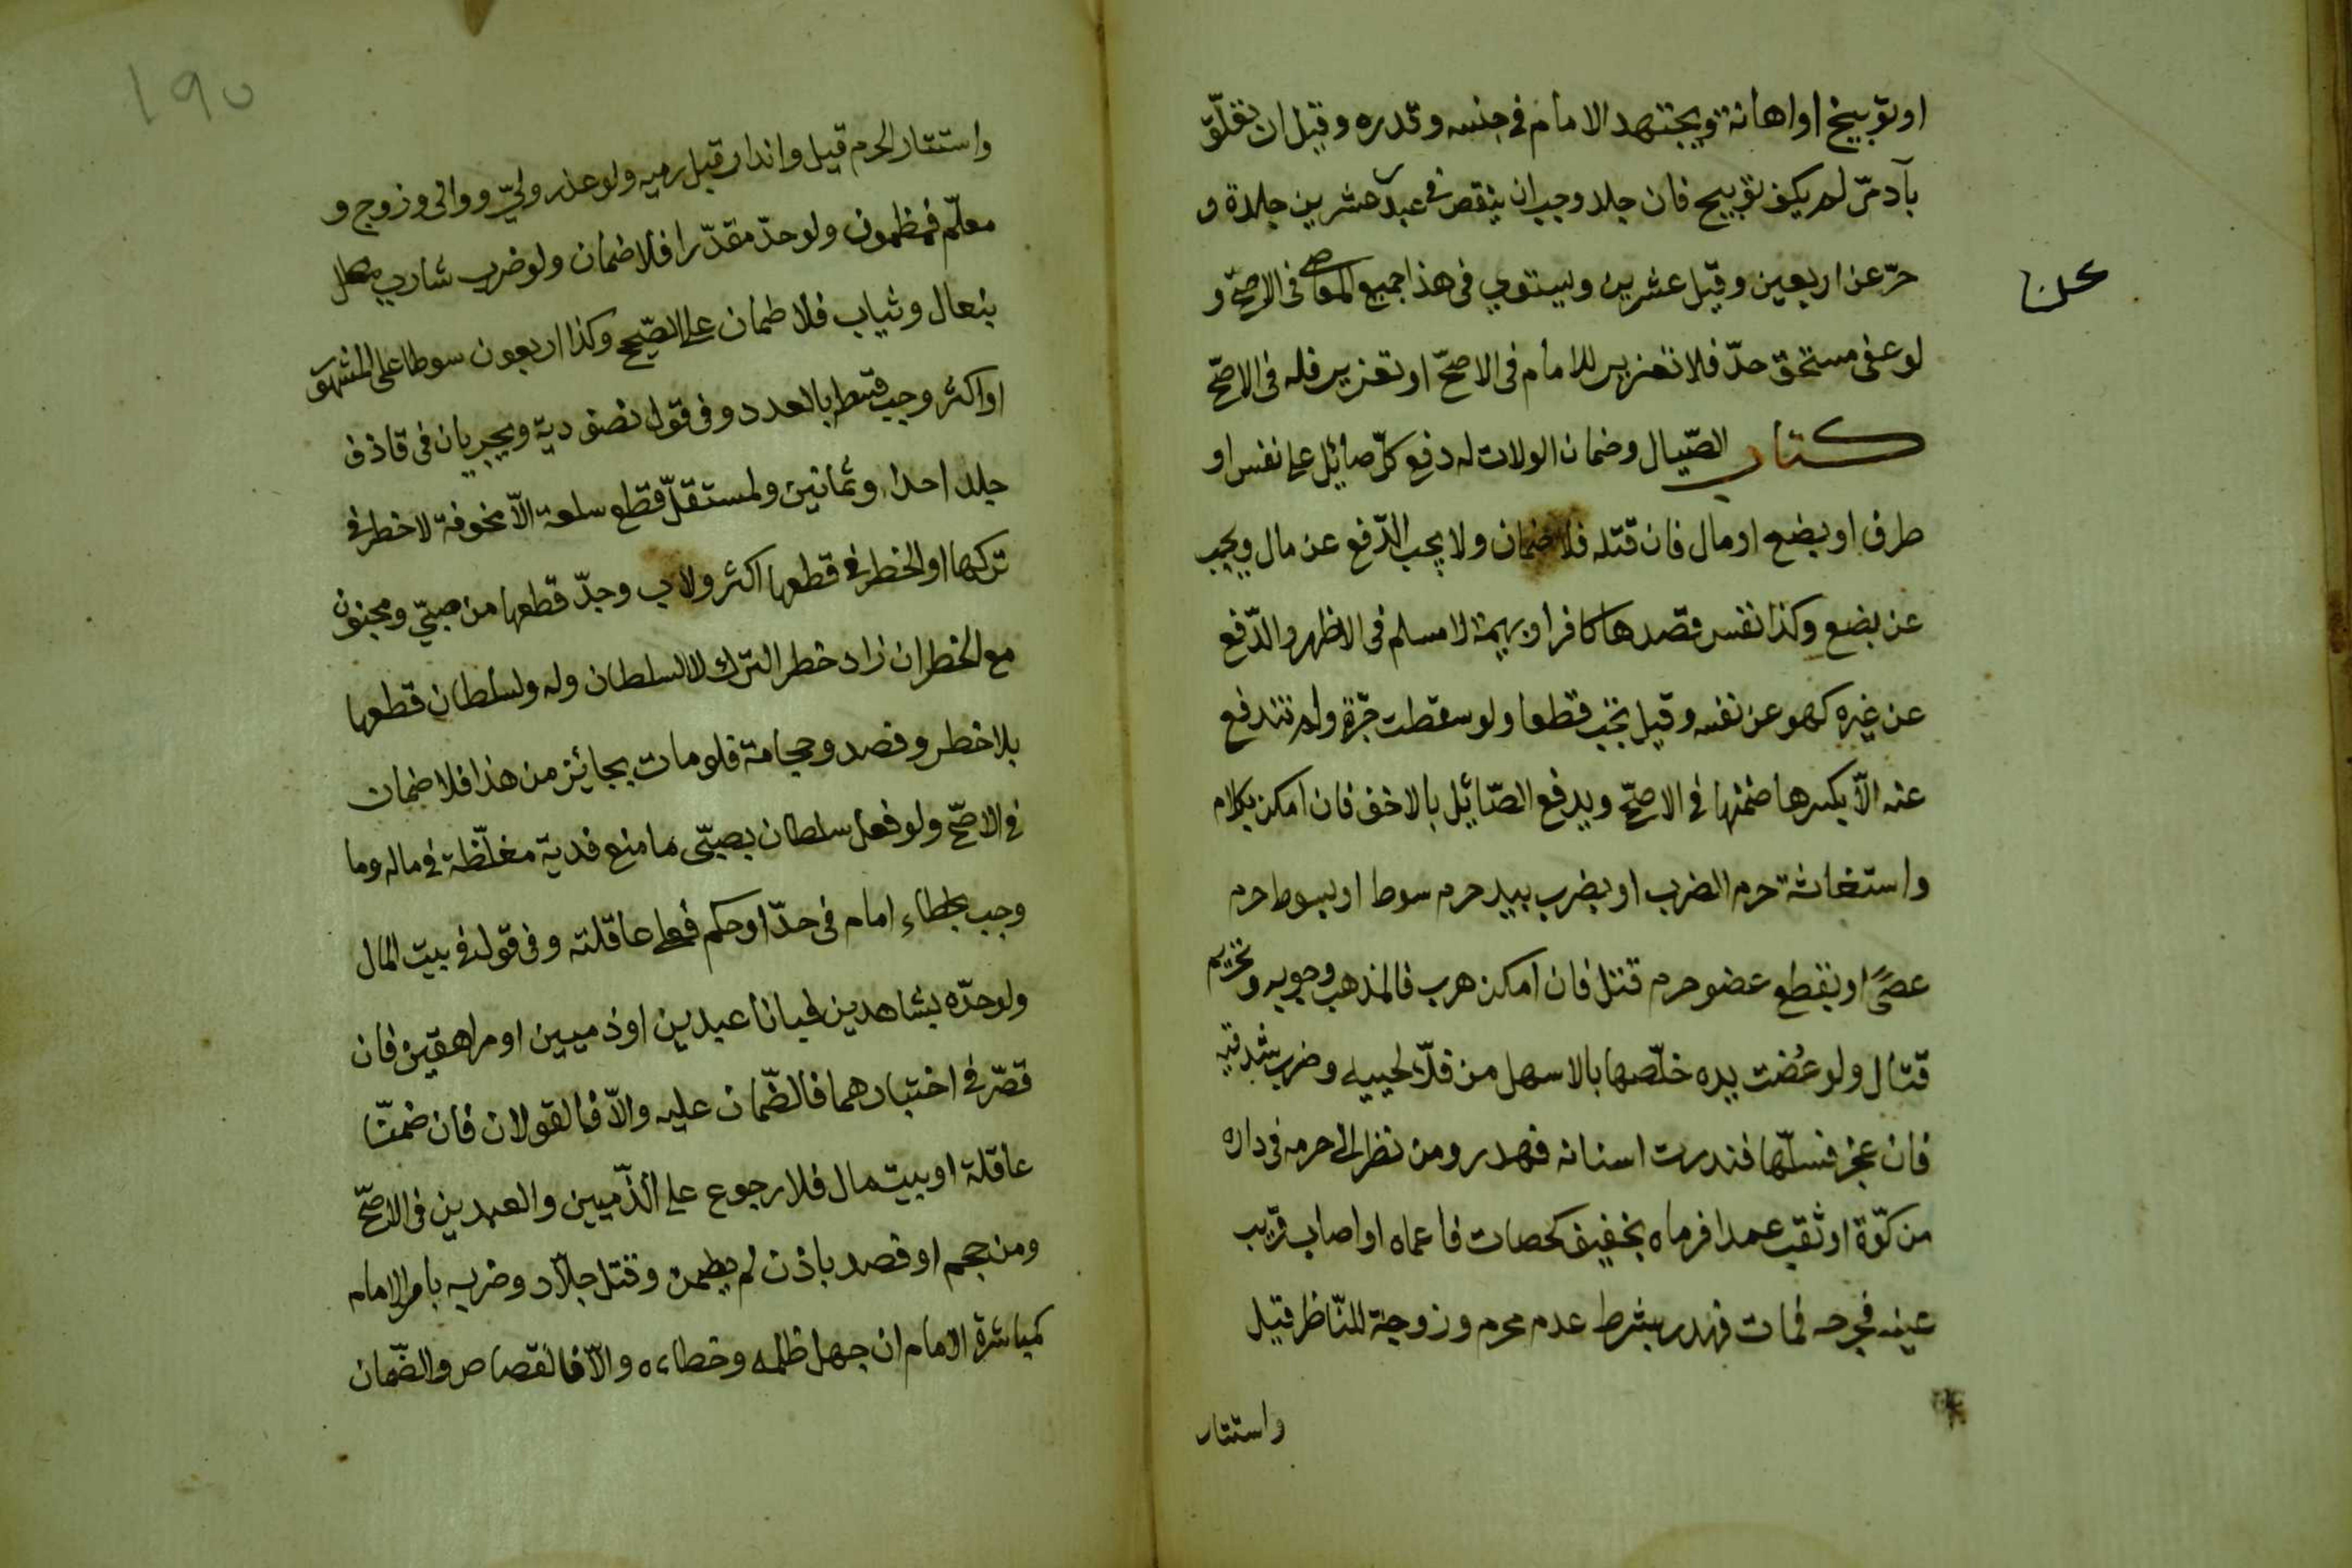 او توبيخ او اهانة ويجتهد الامام في جنسه وقدره وقيل ان تعلّق
بآدمىّ لم يكف توبيخ فان جلد وجب ان ينقص في عبد عن عشرين جلدة و
حرّ عن اربعين وقيل عشرين ويستوي في هذا جميع المعاصي في الاصحّ و
لو عفى مستحق حدّ فلا تعزير للامام في الاصحّ او تعزير فله في الاصحّ
كتاب الصّيال وضمان الولات له دفع كلّ صائل على نفس او
طرف او بضع او مال فان قتله فلا ضمان ولا يجب الدّفع عن مال ويجب
عن بضع وكذا نفس قصدها كافر او بهيمة لا مسلم في الاظهر والدّفع
عن غيره كهو عن نفسه وقيل يجب قطعا ولو سقطت جرّة ولم تندفع
عنه الّا بكسرها ضمنها في الاصحّ ويدفع الصّائل بالاخف فان امكن بكلام
واستغاثة حرم الضرب او بضرب بيد حرم سوط او بسوط حرم
عصًى او بقطع عضو حرم قتل فان امكن هرب فالمذهب وجوبه وتحريم
قتال ولو عُضت يده خلّصها بالاسهل من فكّ لحييه وضرب شدقيه
فان عجز فسلّها فندرت اسنانه فهدر ومن نظر الى حرمه في داره
من كوّة او ثقب عمدا فرماه بخفيف كحصات فاعماه او اصاب قريب
عينه فجرحه فمات فهدر بشرط عدم محرم وزوجة للنّاظر قيل
واستتار
١٩٥
واستتار الحرم قيل وانذار قبل رميه ولو عذر وليّ ووالى وزوج و
معلّم فمظمون ولو حدّ مقدّرا فلا ضمان ولو ضرب شارب
بنعال وثياب فلا ظمان على الصّحيح وكذا اربعون سوطا على المشهور
او اكثر وجب قسطه بالعدد وفى قول نصف دية ويجريان فى قاذف
جلد احدا وثمانين ولمستقلّ قطع سلعة الّا مخوفة لا خطر في
تركها او الخطر في قطعها اكثر ولاب وجدّ قطعها من صبّي ومجنون
مع الخطر ان زاد خطر الترك لا لسلطان وله ولسلطان قطعها
بلا خطر وفصد وحجامة فلو مات بجائز من هذا فلا ضمان
في الاصحّ ولو فعل سلطان بصبّي ما منع فدية مغلّظة في ماله وما
وجب بخطاء امام في حدّ او حكم فعلى عاقلته وفى قول في بيت المال
ولو حدّه بشاهدين فبانا عبدين او ذميين او مراهقين فان
قصّر في اختبارهما فالضّمان عليه والّا فالقولان فان ضمّنّا
عاقلة او بيت مال فلا رجوع على الذّميين والعبدين في الاصحّ
ومن حجم او فصد باذن لم يظمن وقتل جلّاد وضربه بامر الامام
كمباشرة الامام ان جهل ظلمه وخطاءه والّا فالقصاص والضّمان